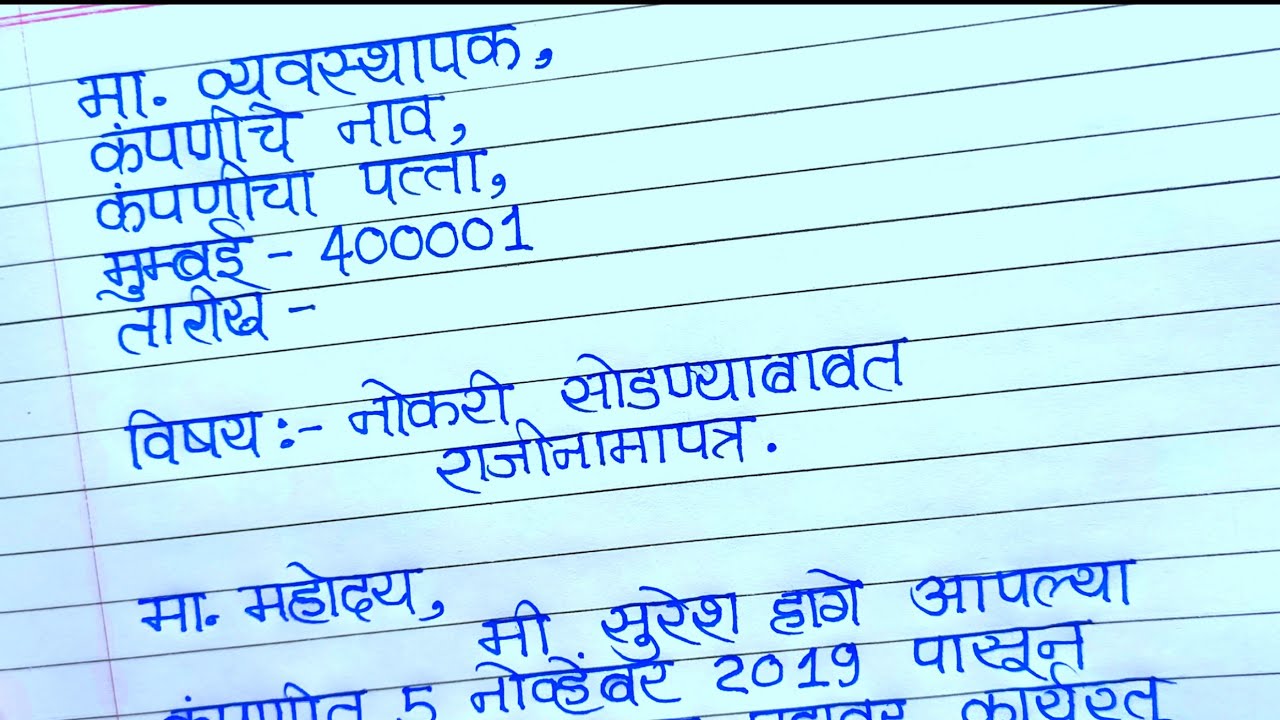 मा. व्यवस्थापक,
कंपणीचे नाव,
कंपणीचा पत्ता,
मुम्बई - 400001
तारीख -
विषय :- नोकरी सोडण्याबाबत
राजीनामापत्र.
मा. महोदय,
मी सुरेश हागे आपल्या
कंपणीत 5 नोव्हेंबर 2019 पासून
पदावर कार्यरत